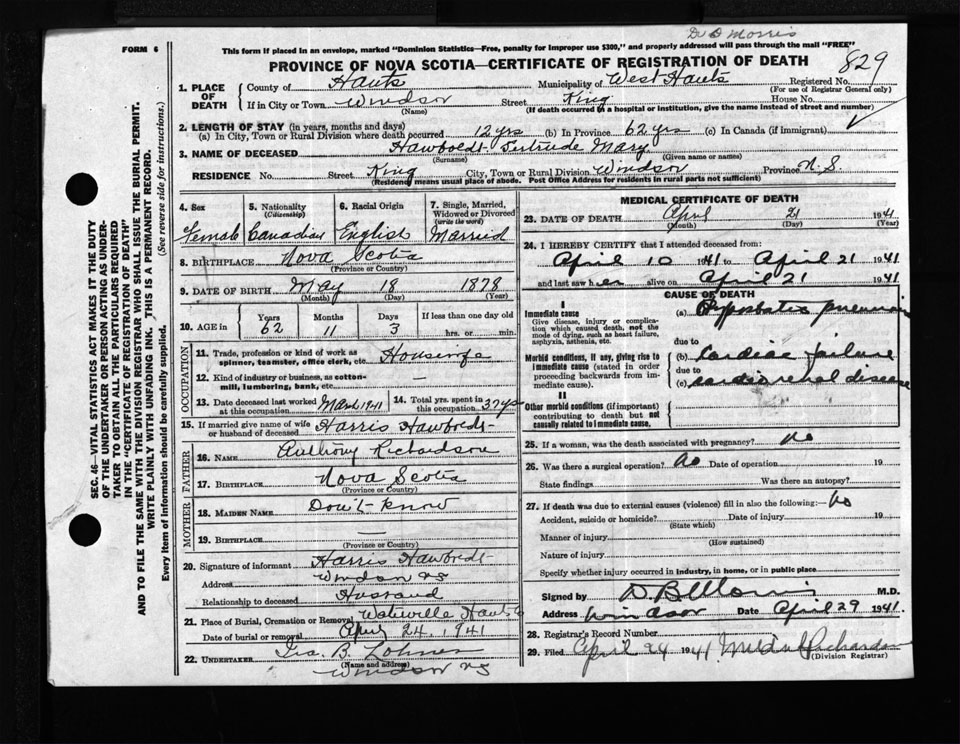 Dr D Morris
FORM 6
This form if placed in an envelope, marked "Dominion Statistics—Free, penalty for improper use $300," and properly addressed will pass through the mail "FREE"
PROVINCE OF NOVA SCOTIA—CERTIFICATE OF REGISTRATION OF DEATH
829
1. PLACE OF DEATH
County of Hants Municipality of West Hants Registered No.
(For use of Registrar General only)
If in City or Town Windsor Street King House No.
(Name) (If death occurred in a hospital or institution, give the name instead of street and number)
2. LENGTH OF STAY (in years, months and days)
(a) In City, Town or Rural Division where death occurred 12 yrs (b) In Province 62 yrs (c) In Canada (if immigrant)
3. NAME OF DECEASED Hawboldt Gertrude Mary
(Surname) (Given name or names)
RESIDENCE No. Street King City, Town or Rural Division Windsor Province N.S.
(Residency means usual place of abode. Post Office Address for residents in rural parts not sufficient)
4. Sex
Female
5. Nationality
(Citizenship)
Canadian
6. Racial Origin
English
7. Single, Married, Widowed or Divorced
(write the word)
Married
8. BIRTHPLACE Nova Scotia
(Province or Country)
9. DATE OF BIRTH May 18 1878
(Month) (Day) (Year)
10. AGE in
Years Months Days If less than one day old
62 11 3 hrs. or min.
OCCUPATION
11. Trade, profession or kind of work as
spinner, teamster, office clerk, etc. Housewife
12. Kind of industry or business, as cotton-
mill, lumbering, bank, etc. —
13. Date deceased last worked
at this occupation
14. Total yrs. spent in
this occupation 37 yrs
15. If married give name of wife
or husband of deceased Harris Hawboldt
FATHER
16. NAME Anthony Richardson
17. BIRTHPLACE Nova Scotia
(Province or Country)
MOTHER
18. MAIDEN NAME Don't know
19. BIRTHPLACE —
(Province or Country)
20. Signature of informant Harris Hawboldt
Address Windsor NS
Relationship to deceased Husband
21. Place of Burial, Cremation or Removal Waterville Hants Co
Date of burial or removal April 24. 1941
22. UNDERTAKER Ira. B. Lohnes
(Name and address)
Windsor NS
MEDICAL CERTIFICATE OF DEATH
23. DATE OF DEATH April 21 1941
(Month) (Day) (Year)
24. I HEREBY CERTIFY that I attended deceased from:
April 10 1941 to April 21 1941
and last saw her alive on April 21 1941
CAUSE OF DEATH
I
Immediate cause
Give disease, injury or complica-
tion which caused death, not the
mode of dying, such as heart failure,
asphyxia, asthenia, etc.
(a)
due to
Morbid conditions, if any, giving rise to
immediate cause (stated in order
proceeding backwards from im-
mediate cause).
(b) Cardiac failure
due to
(c) Cardio renal disease
II
Other morbid conditions (if important)
contributing to death but not
causally related to immediate cause.
25. If a woman, was the death associated with pregnancy? no
26. Was there a surgical operation? no Date of operation 19
State findings Was there an autopsy?
27. If death was due to external causes (violence) fill in also the following:— no
Accident, suicide or homicide? Date of injury 19
(State which)
Manner of injury
(How sustained)
Nature of injury
Specify whether injury occurred in industry, in home, or in public place
Signed by D B Morris M.D.
Address Windsor Date April 29 1941.
28. Registrar's Record Number
29. Filed April 24 1941.
(Division Registrar)
SEC. 46—VITAL STATISTICS ACT MAKES IT THE DUTY
OF THE UNDERTAKER OR PERSON ACTING AS UNDER-
TAKER TO OBTAIN ALL THE PARTICULARS REQUIRED
IN THE "CERTIFICATE OF REGISTRATION OF DEATH"
AND TO FILE THE SAME WITH THE DIVISION REGISTRAR WHO SHALL ISSUE THE BURIAL PERMIT.
WRITE PLAINLY WITH UNFADING INK. THIS IS A PERMANENT RECORD.
Every item of information should be carefully supplied. (See reverse side for instructions.)